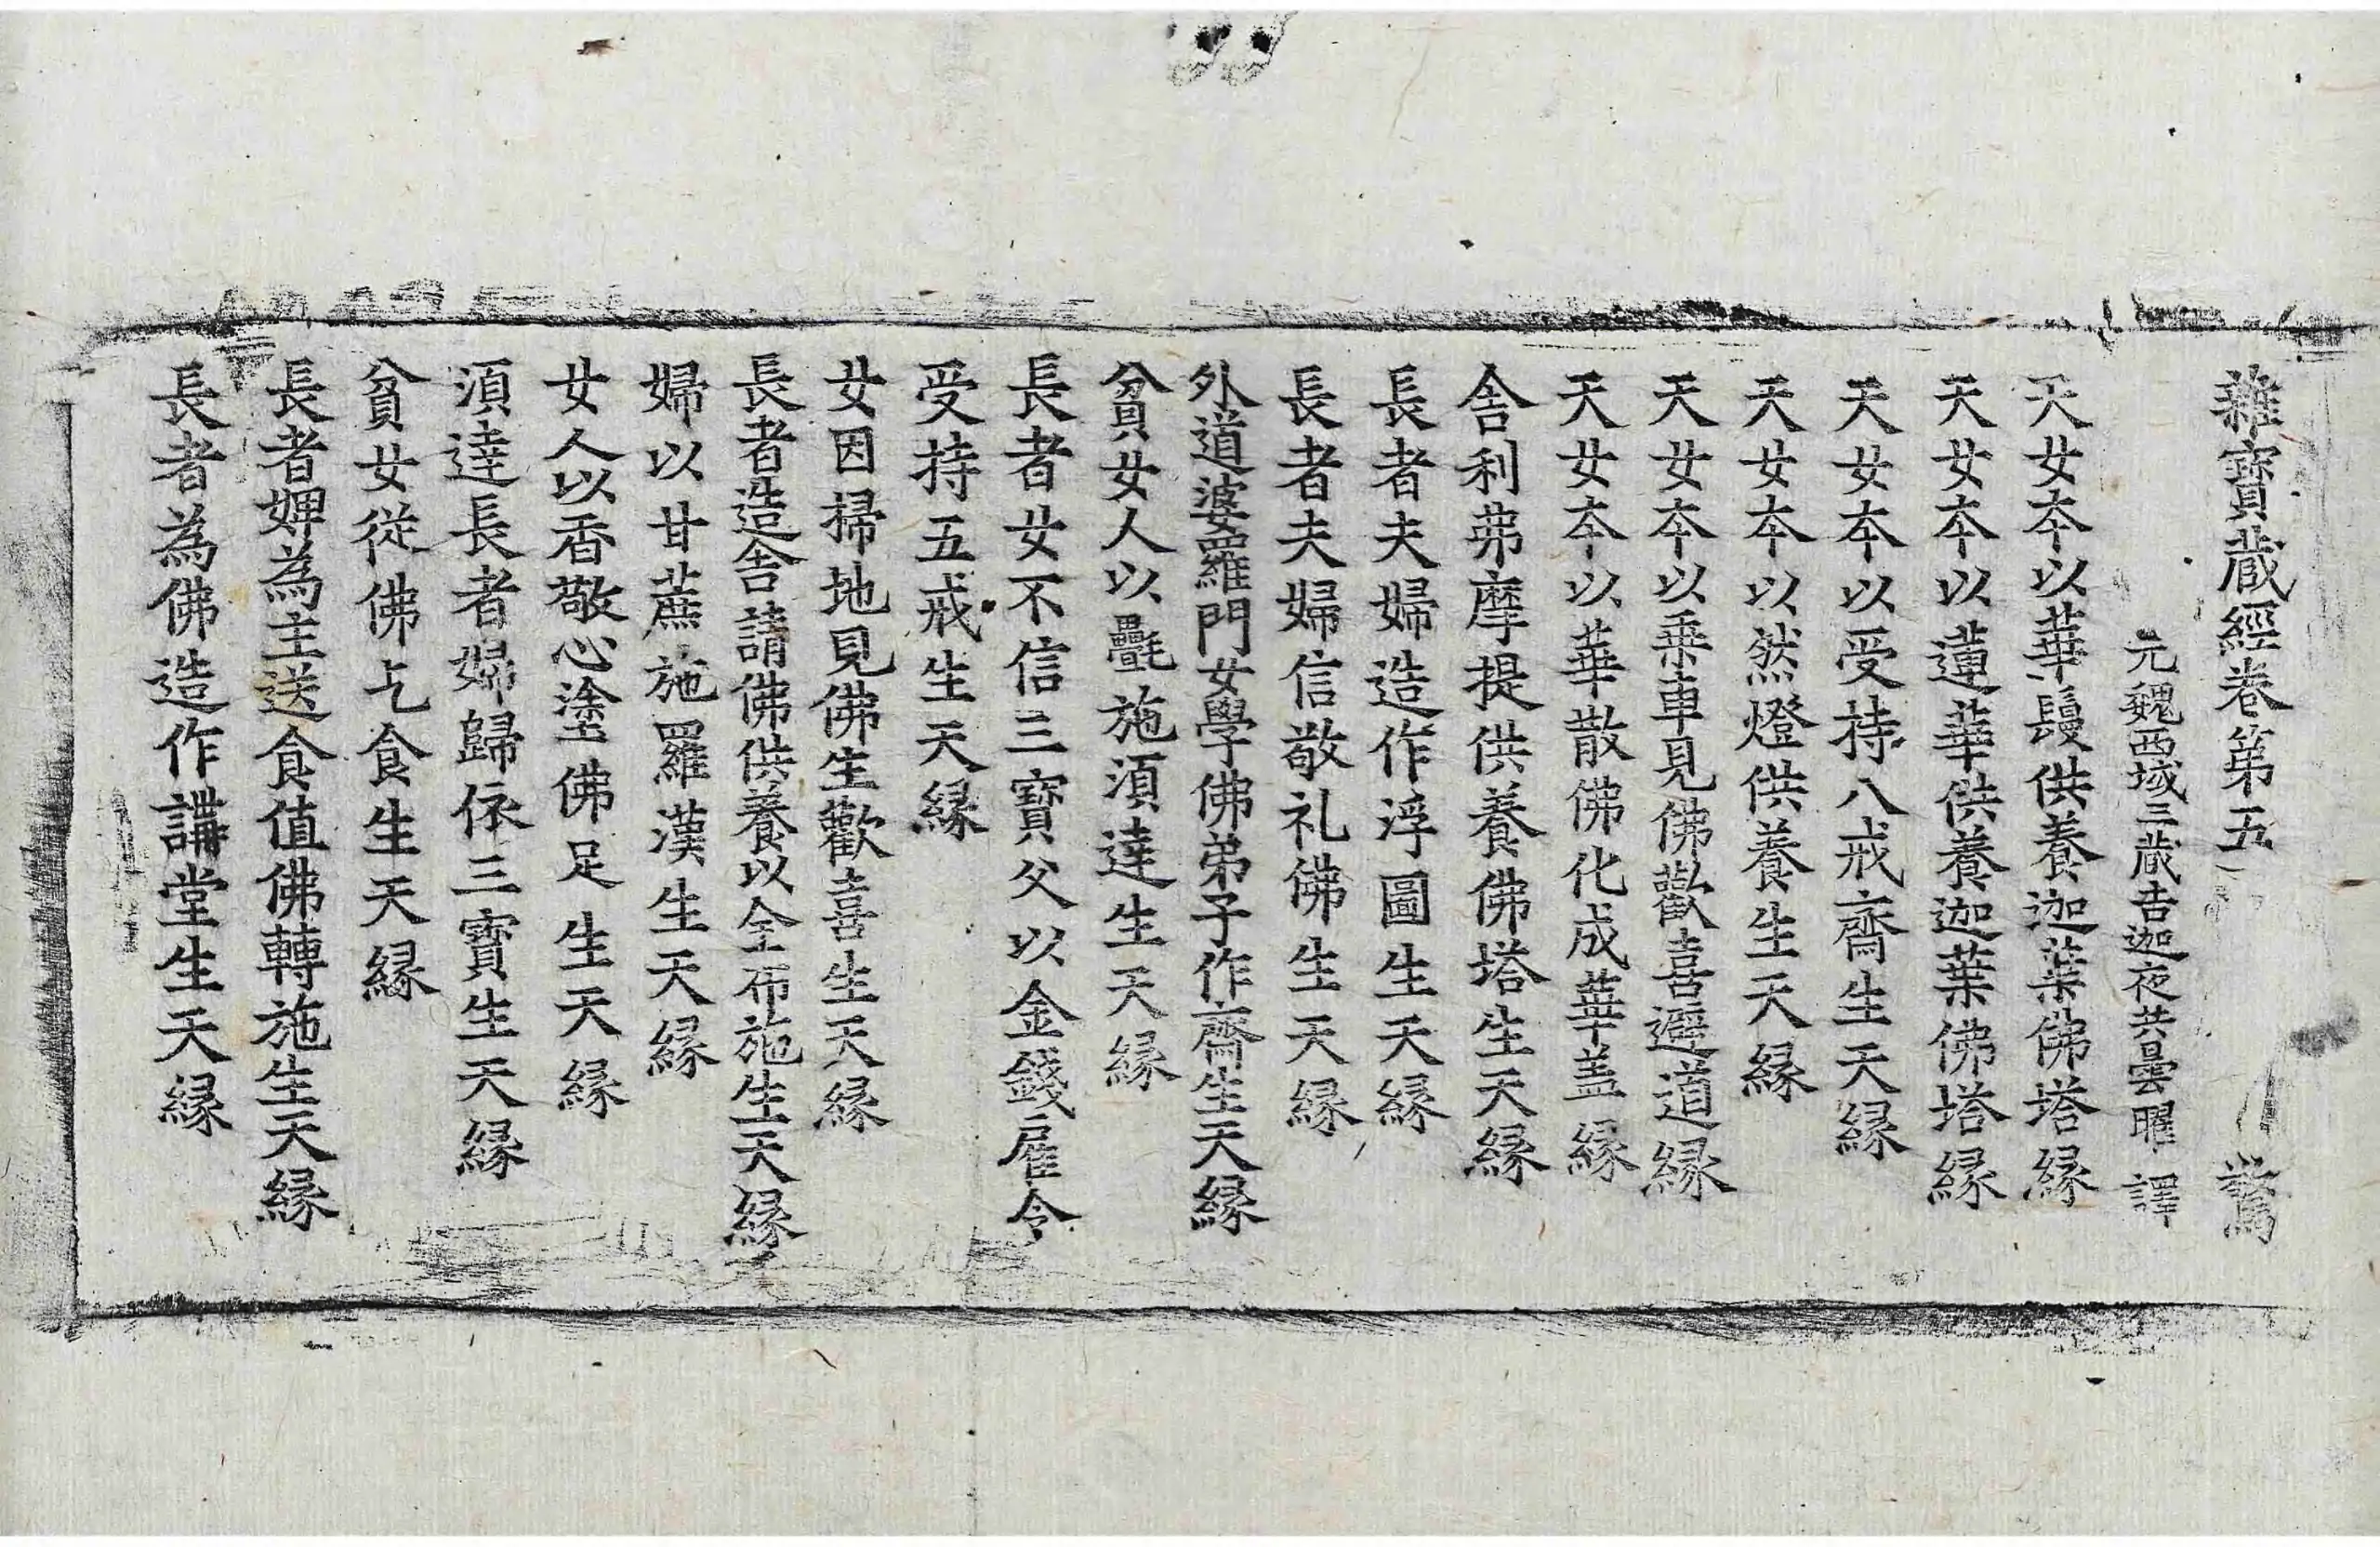 雜寶蔵經卷第五 驚
元魏西域三蔵吉迦夜共曇曜 譯
天女本以華鬘供養迦葉佛塔縁
天女本以蓮華供養迦葉佛塔縁
天女本以受持八戒齋生天縁
天女本以然燈供養生天縁
天女本以乗車見佛歡喜避道縁
天女本以華散佛化成華盖縁
舎利弗摩提供養佛塔生天縁
長者夫婦造作浮圖生天縁
長者夫婦信敬礼佛生天縁
外道婆羅門女學佛弟子作齋生天縁
貧女人以㲲施湏逹生天縁
長者女不信三寶父以金錢雇令
受持五戒生天縁
女因掃地見佛生歡喜生天縁
長者造舎請佛供養以全布施生天縁
婦以甘蔗施羅漢生天縁
女人以香敬心塗佛足生天縁
湏逹長者婦歸依三寶生天縁
貧女從佛乞食生天縁
長者婢為主送食值佛轉施生天縁
長者為佛造作講堂生天縁